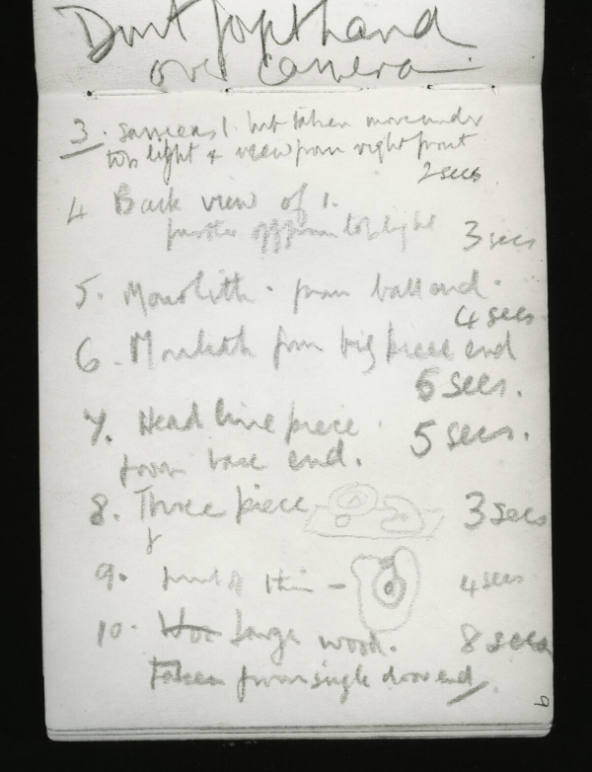 Dont jopthand
over camera.
3. same as 1. but taken more under
top light & view from right front
2 secs
4 Back view of 1.
further off from toplight 3 secs
5. Monolith. from ball end.
4 secs
6. Monolith from big piece end
6 secs.
7. Head line piece. 5 secs.
from base end.
8. Three piece 3 secs
9. 4 secs
10. Large wood. 8 secs
Taken from single door end
9